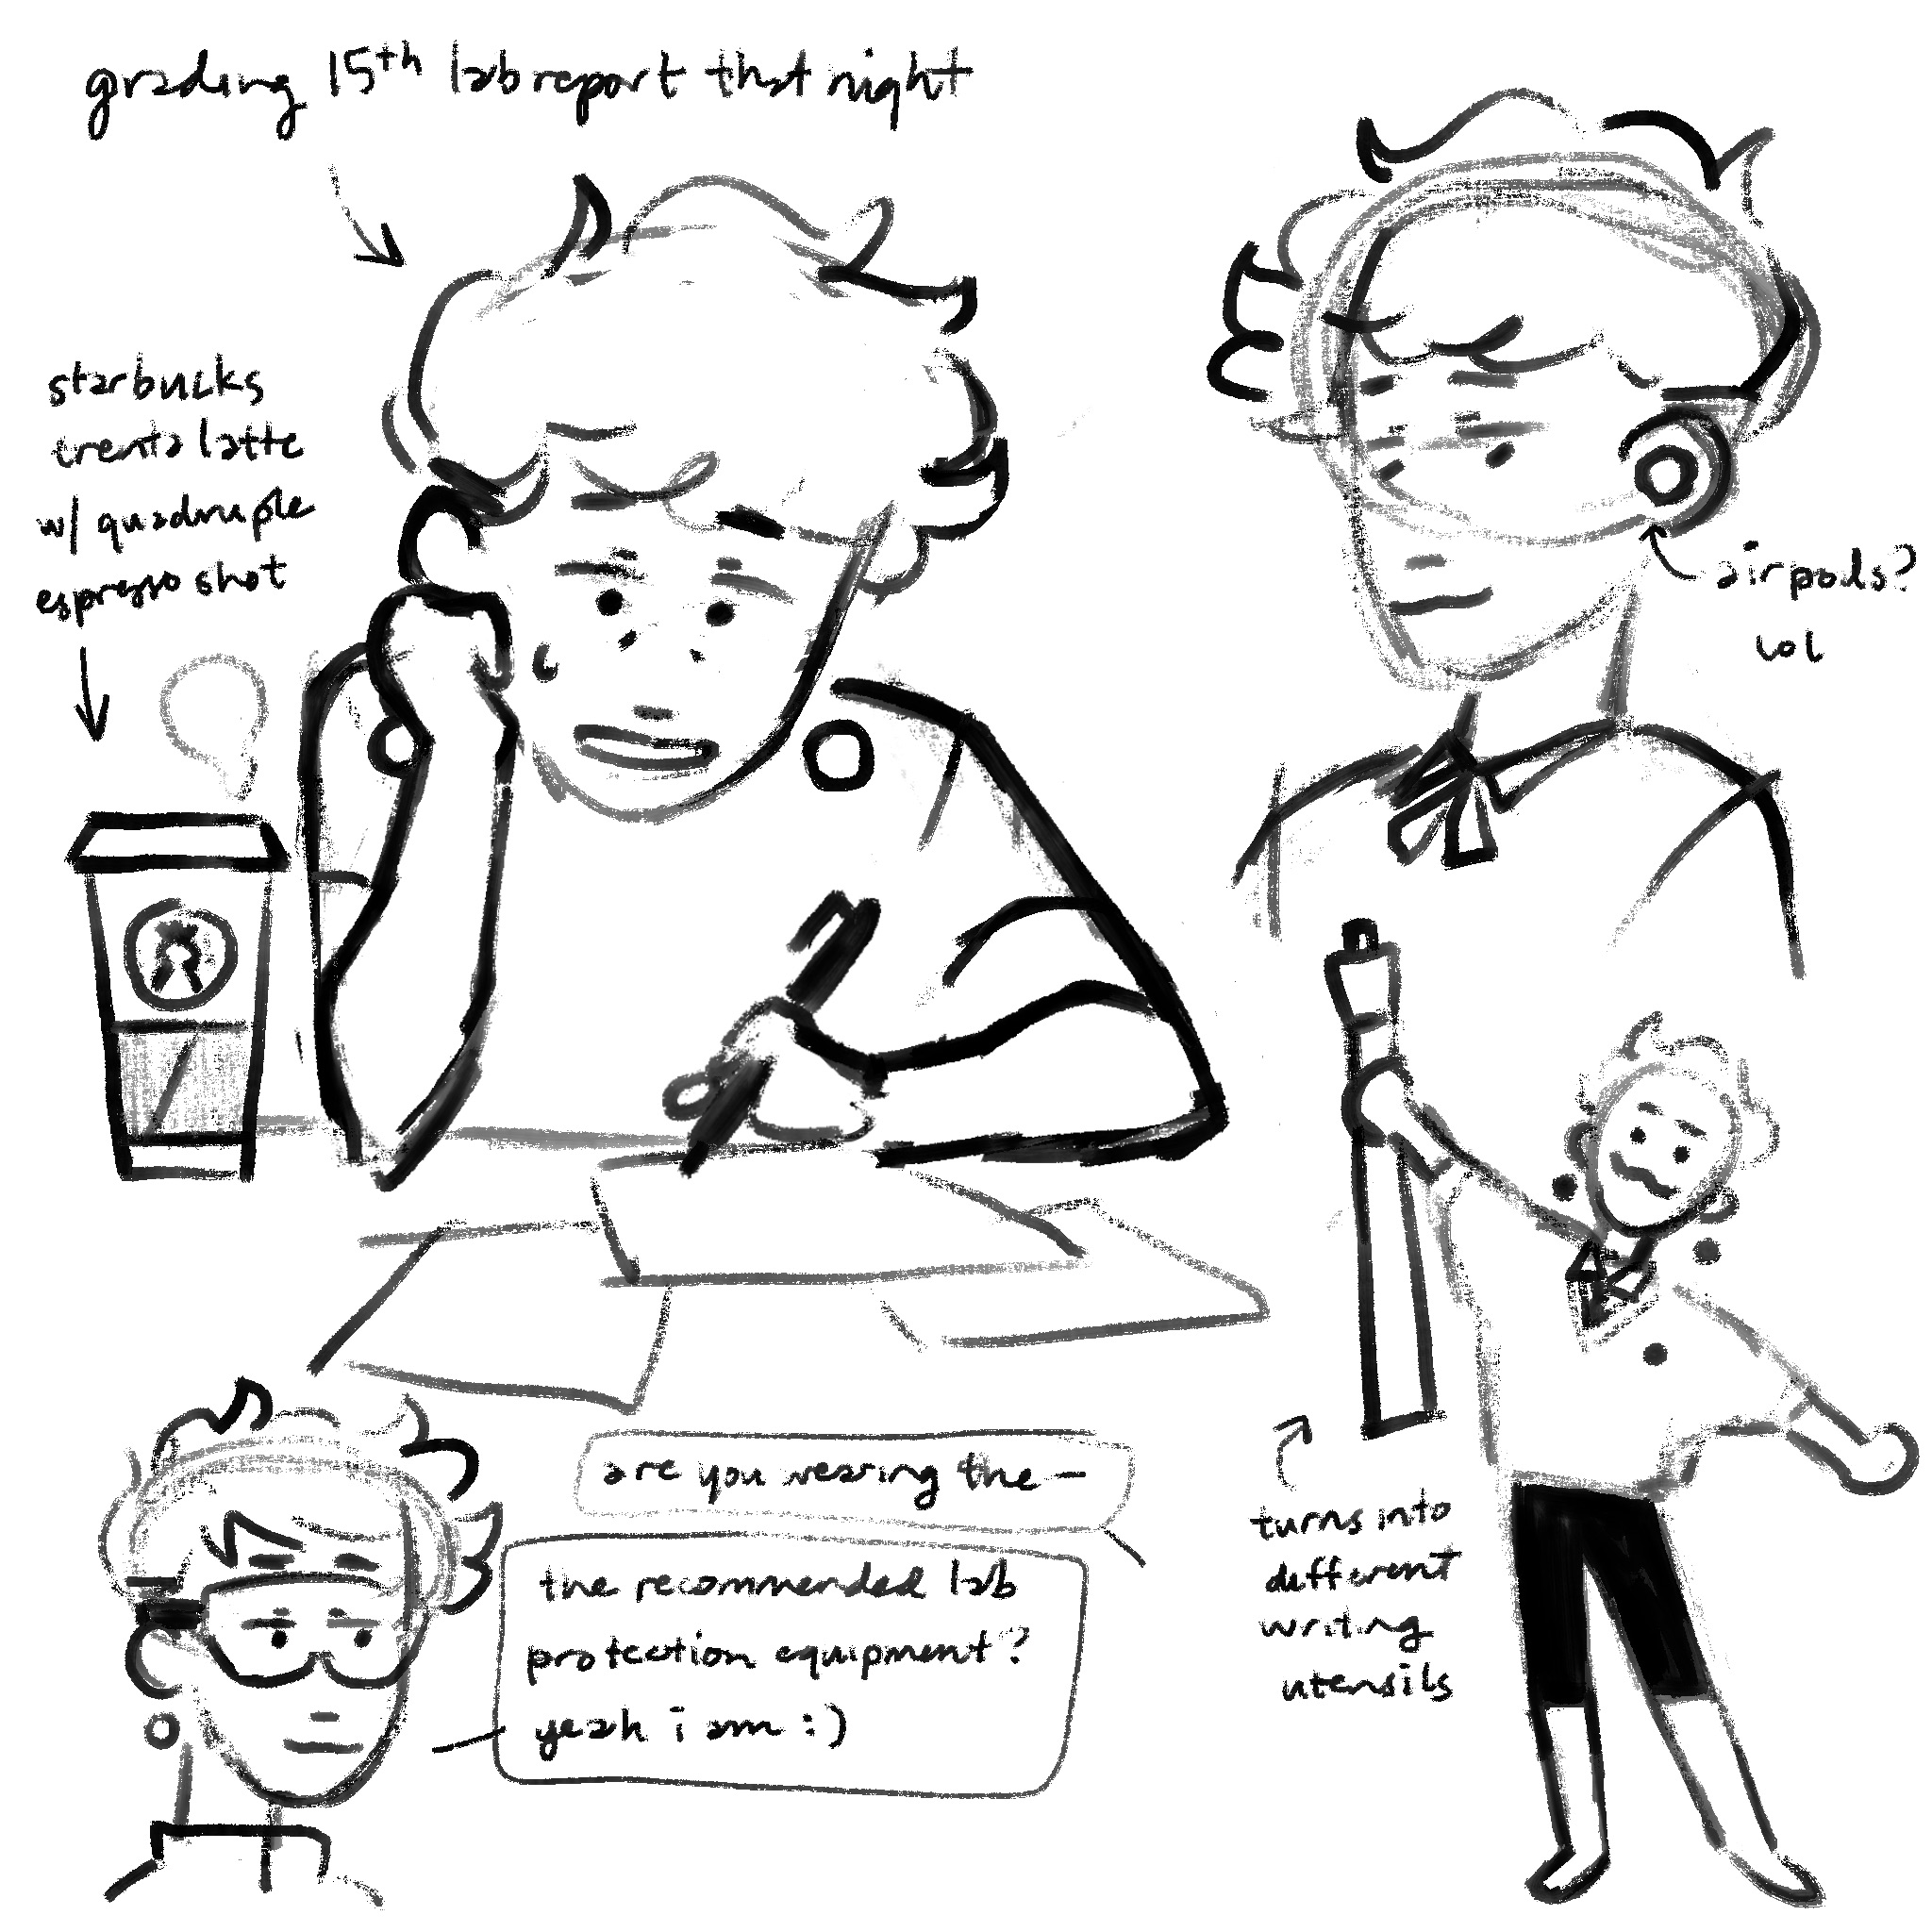 grading 15th lab report that night
starbucks
trenta latte
w/ quadruple
espresso shot
airpods?
lol
are you wearing the —
the recommended lab
protection equipment?
yeah i am :)
turns into
different
writing
utensils